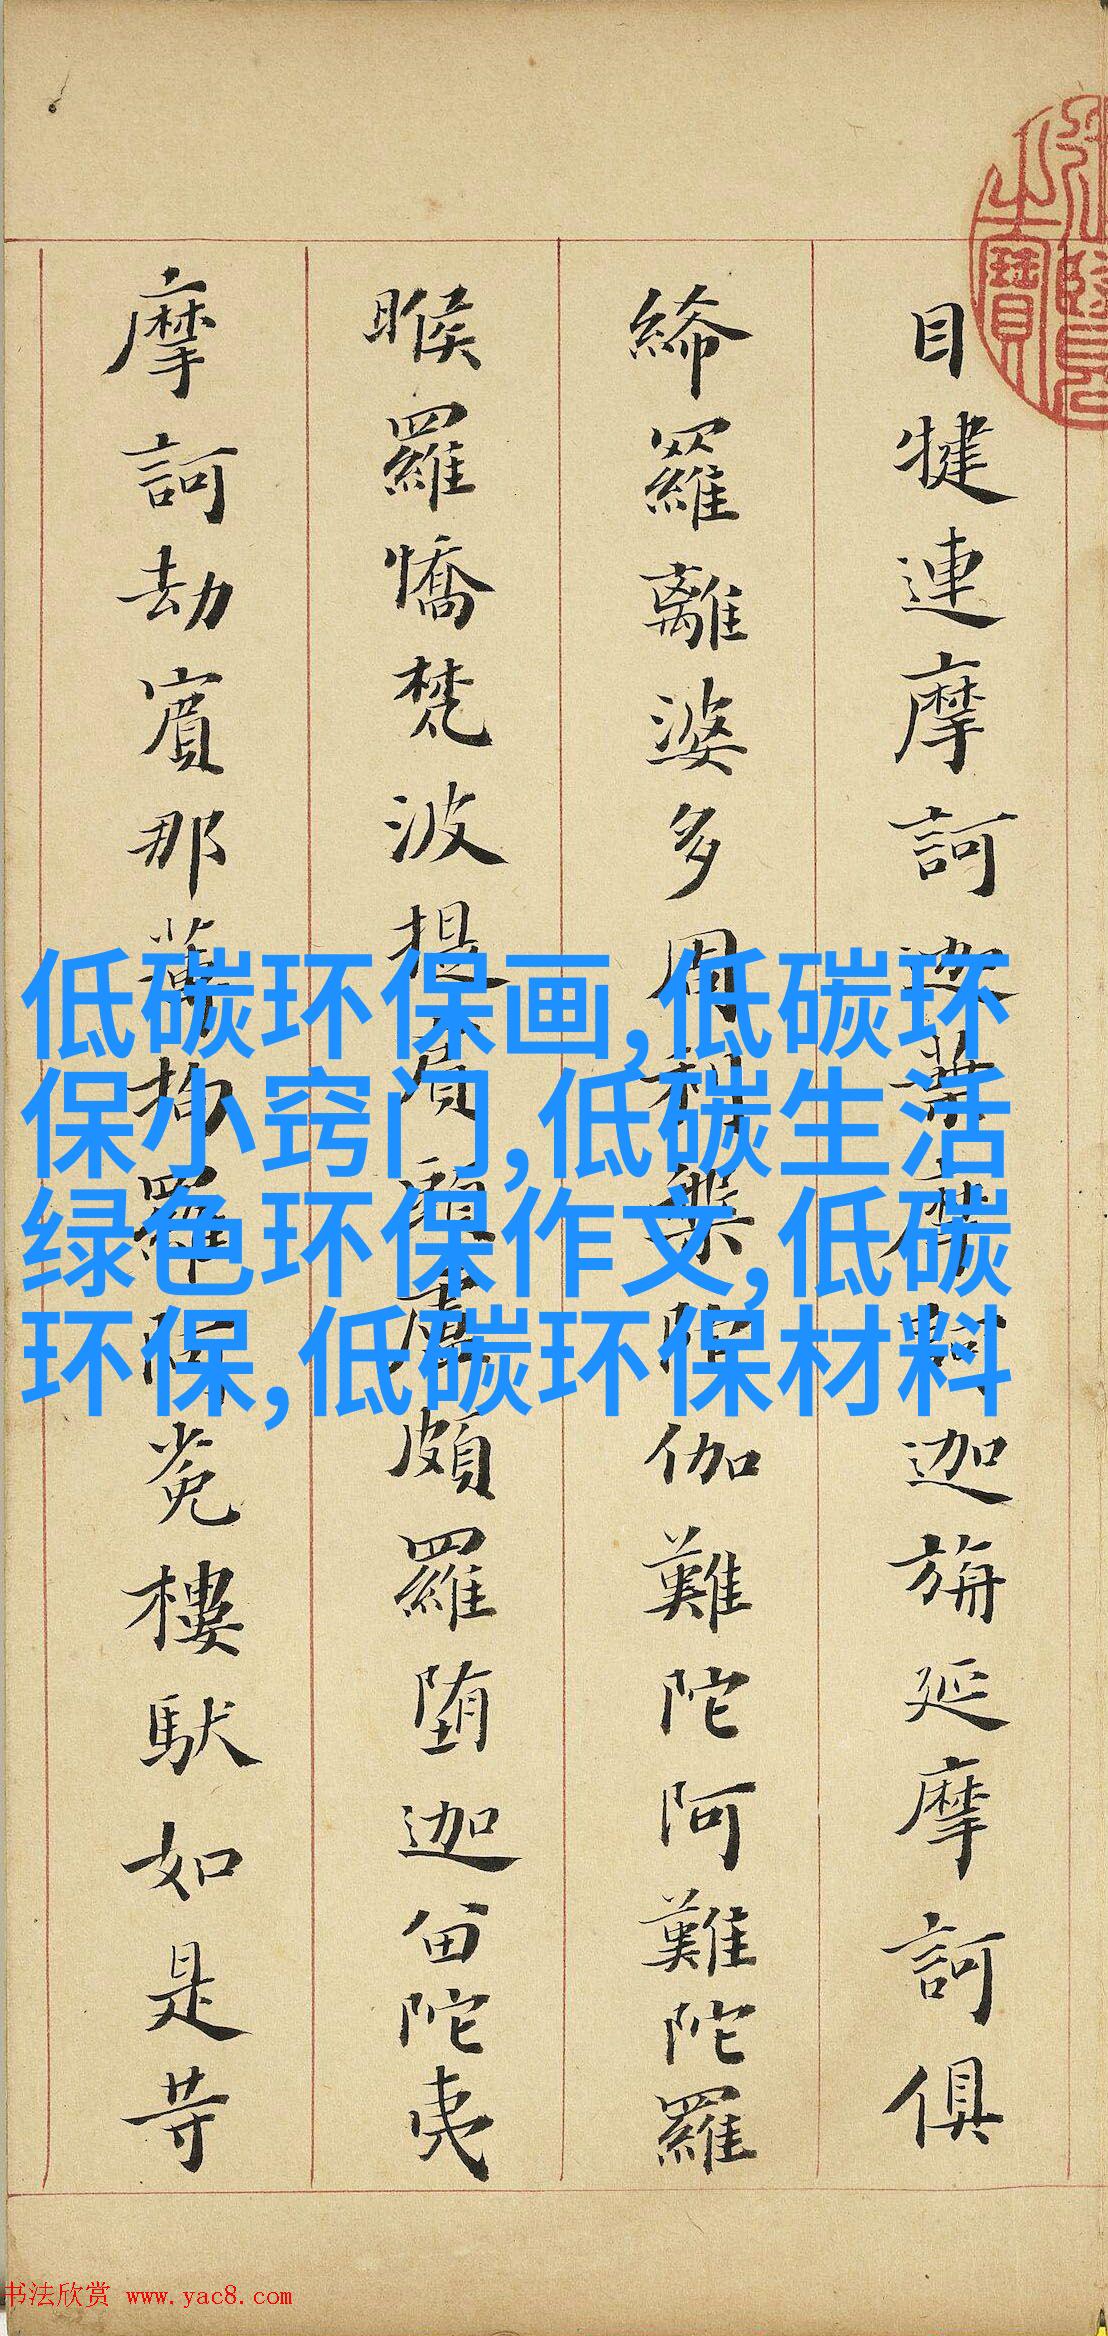 目犍連摩訶迦葉摩訶迦旃延摩訶俱
絺羅離婆多周利槃陀伽難陀阿難陀羅
睺羅憍梵波提賓頭盧頗羅堕迦留陀夷
摩訶劫賓那薄拘羅阿㝹樓馱如是等
低碳环保画,低碳环
保小窍门,低碳生活
绿色环保作文,低碳
环保,低碳环保材料
书法欣赏 www.yac8.com